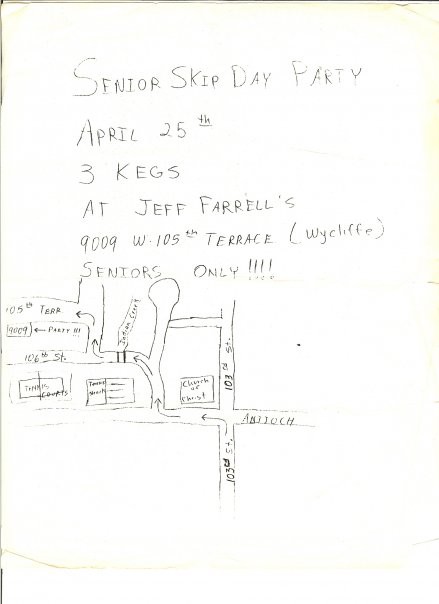 SENIOR SKIP DAY PARTY
APRIL 25th
3 KEGS
AT JEFF FARRELL'S
9009 W. 105th TERRACE (Wycliffe)
SENIORS ONLY !!!!
105th TERR
9009 ← PARTY !!!
Indian Creek
106th St.
TENNIS
COURTS
Church
of
Christ
103rd St.
ANTIOCH
103rd St.